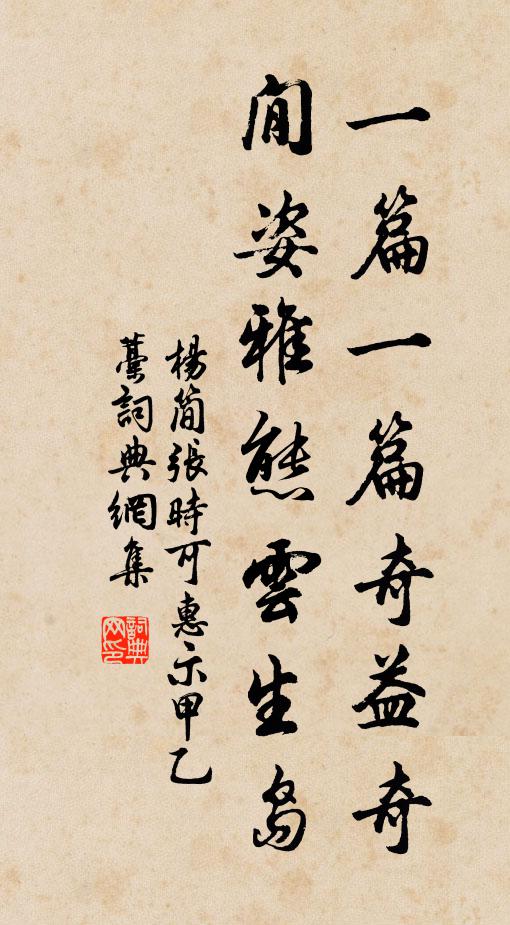 一篇一篇奇益奇
閒姿雅態雲生島
楊簡張時可惠示甲乙
藳詞典網集
詞典網印